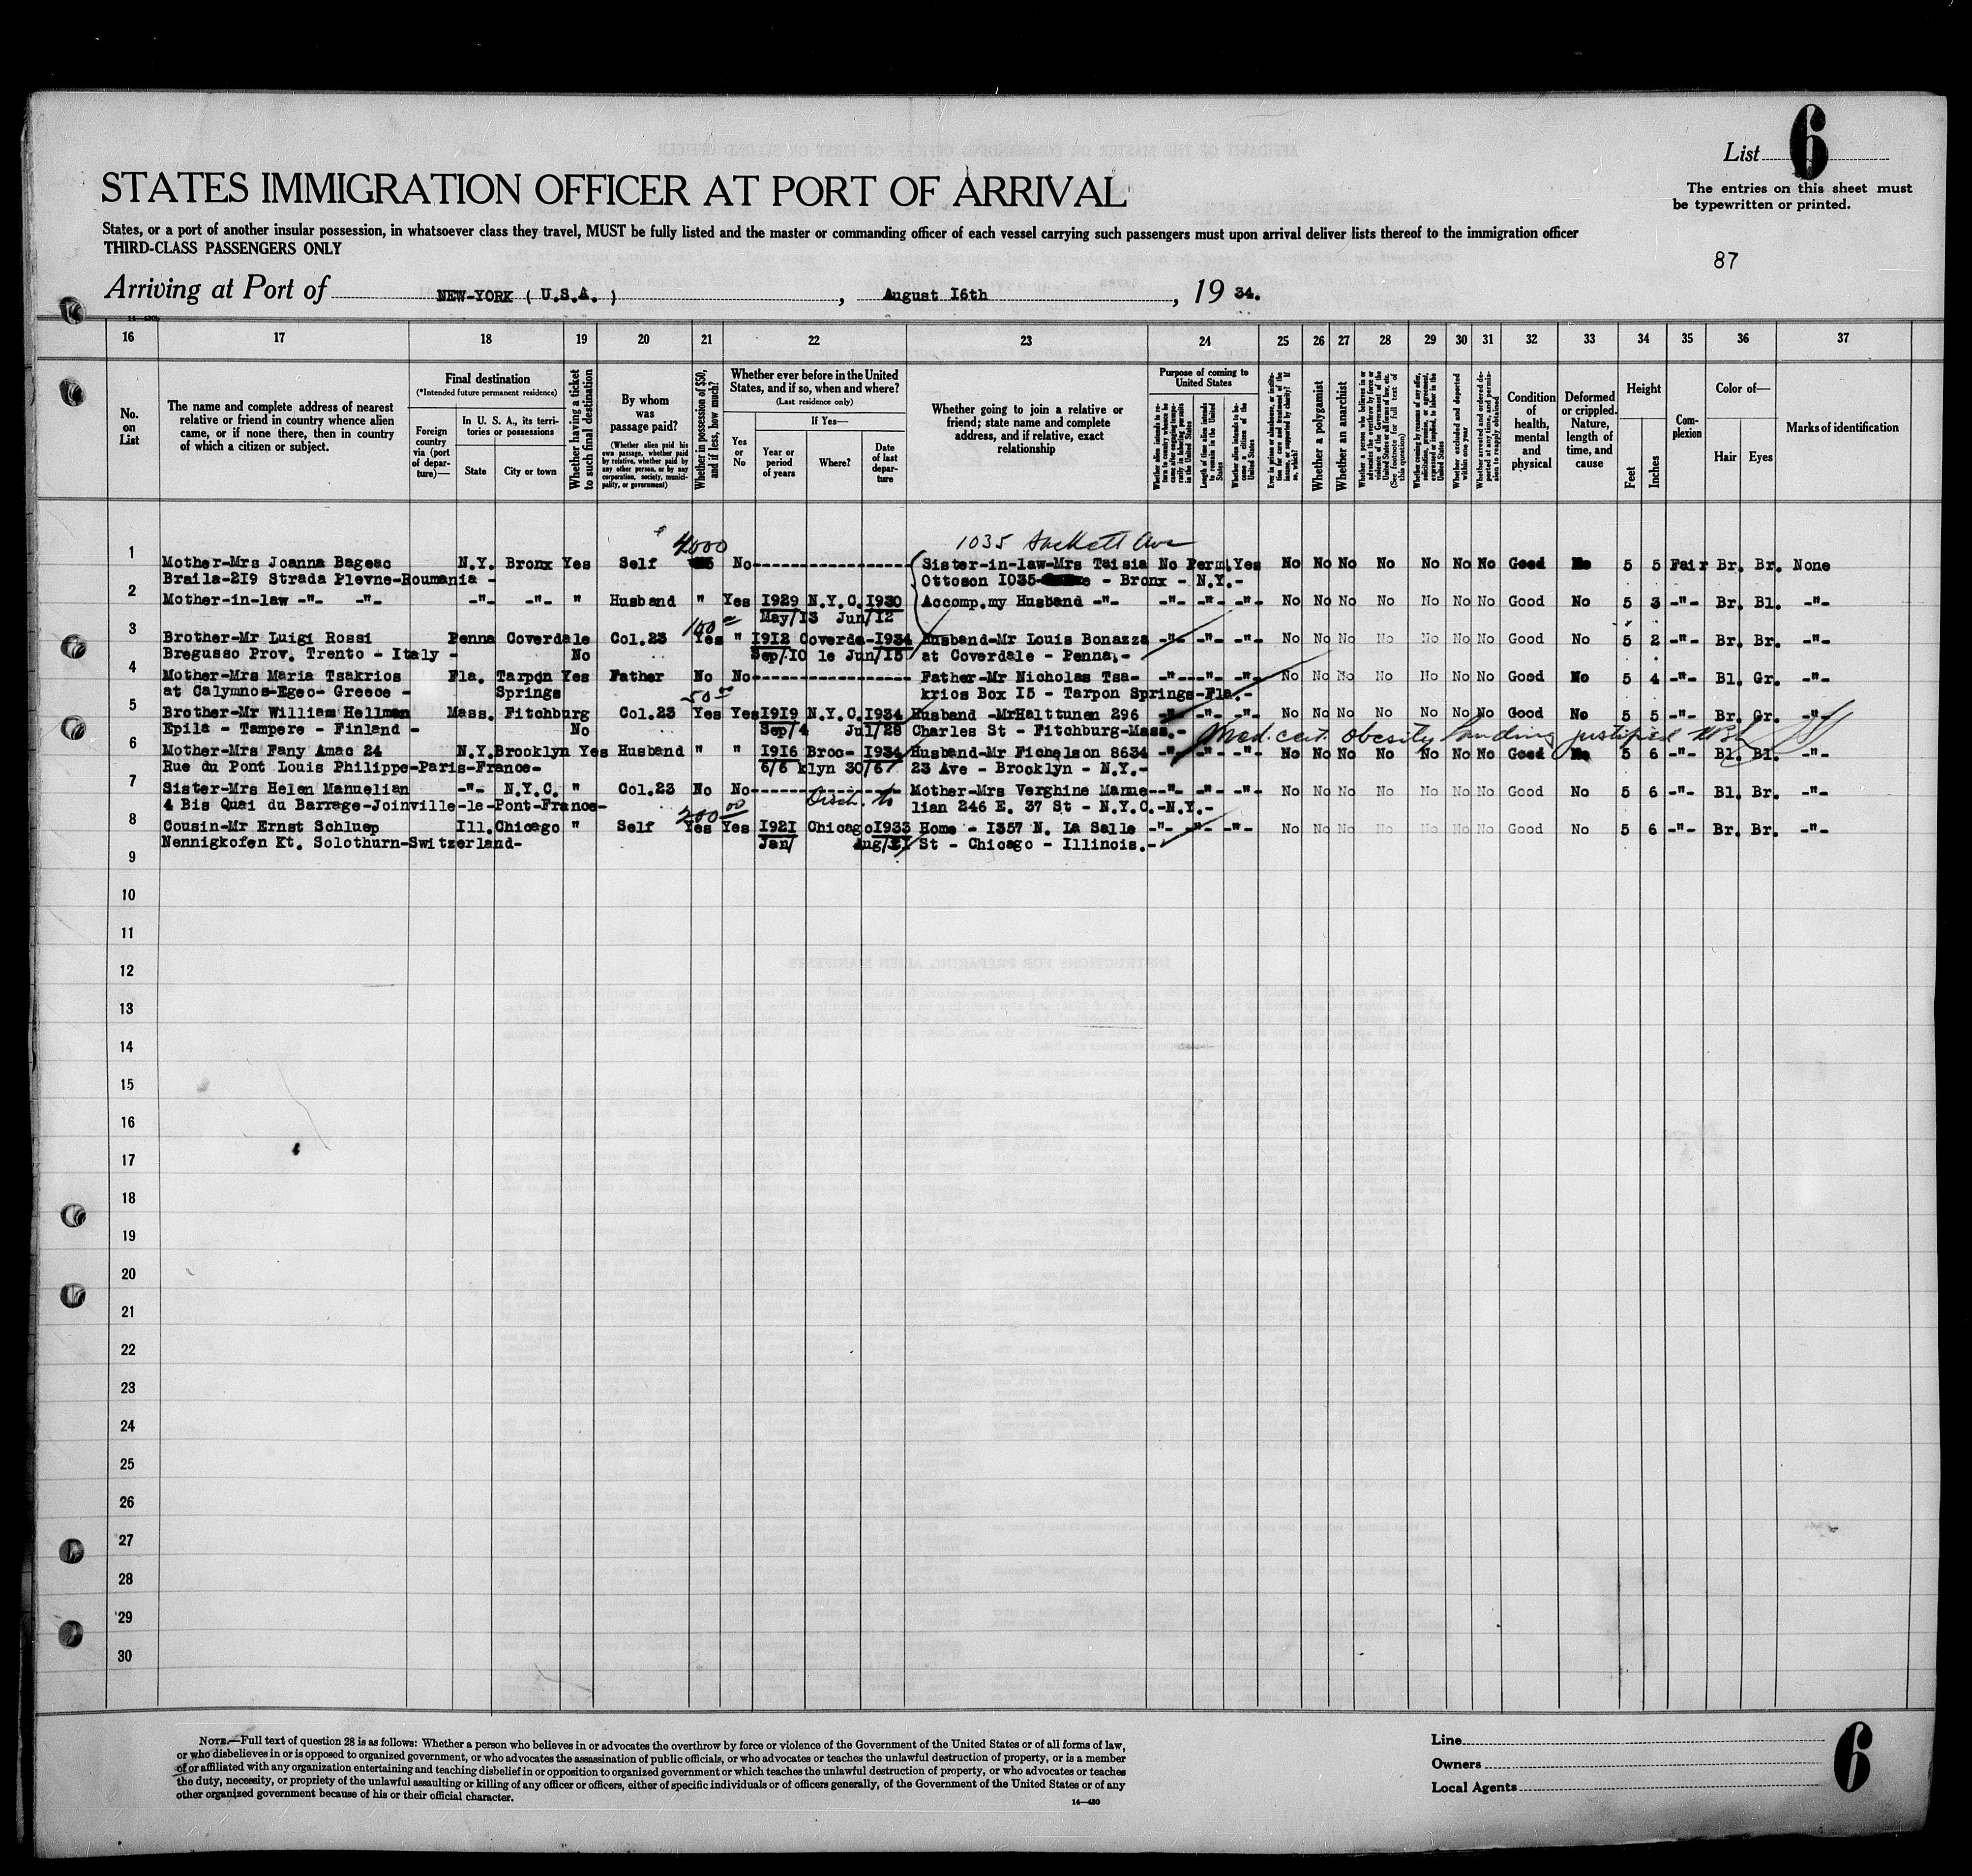 List 6
The entries on this sheet must
be typewritten or printed.
STATES IMMIGRATION OFFICER AT PORT OF ARRIVAL
States, or a port of another insular possession, in whatsoever class they travel, MUST be fully listed and the master or commanding officer of each vessel carrying such passengers must upon arrival deliver lists thereof to the immigration officer
THIRD-CLASS PASSENGERS ONLY
87
Arriving at Port of NEW-YORK ( U.S.A. ) , August I6th , 19 34.
16 17 18 19 20 21 22 23 24 25 26 27 28 29 30 31 32 33 34 35 36 37
No. on List
The name and complete address of nearest relative or friend in country whence alien came, or if none there, then in country of which a citizen or subject.
Final destination
(*Intended future permanent residence)
Foreign country via (port of departure)—
In U. S. A., its territories or possessions
State
City or town
Whether having a ticket to such final destination
By whom was passage paid?
(Whether alien paid his own passage, whether paid by relative, whether paid by any other person, or by any corporation, society, municipality, or government)
Whether in possession of $50, and if less, how much?
Whether ever before in the United States, and if so, when and where?
(Last residence only)
Yes or No
If Yes—
Year or period of years
Where?
Date of last departure
Whether going to join a relative or friend; state name and complete address, and if relative, exact relationship
Purpose of coming to United States
Whether alien intends to return to country whence he came after engaging temporarily in laboring pursuits in the United States
Length of time alien intends to remain in the United States
Whether alien intends to become a citizen of the United States
Ever in prison or almshouse, or institution for care and treatment of the insane, or supported by charity? If so, which?
Whether a polygamist
Whether an anarchist
(See footnote for full text of this question)
Whether coming by reasons of any offer, solicitation, promise, or agreement, expressed or implied, to labor in the United States
Whether excluded and deported within one year
Whether arrested and ordered deported at any time, and permission to reapply obtained
Condition of health, mental and physical
Deformed or crippled. Nature, length of time, and cause
Height
Feet
Inches
Complexion
Color of—
Hair
Eyes
Marks of identification
$ 4000 1035 Sackett Ave
1 Mother-Mrs Joanna Bageac N.Y. Bronx Yes Self No Sister-in-law-Mrs Taisia No Perm. Yes No No No No No No No Good No 5 5 Fair Br. Br. None
Braila-2I9 Strada Plevne-Roumania - Ottoson I035 - Bronx - N.Y.-
2 Mother-in-law -"- -"- -"- -"- " Husband " Yes I929 N.Y.C. I930 Accomp.my Husband -"- -"- -"- -"- No No No No No No No Good No 5 3 -"- Br. Bl. -"-
May/I3 Jun/I2
100
3 Brother-Mr Luigi Rossi Penna Coverdale Col.23 Yes " I9I2 Coverda- I934 Husband-Mr Louis Bonazza -"- -"- -"- No No No No No No No Good No 5 2 -"- Br. Br. -"-
Bregusso Prov. Trento - Italy - No Sep/I0 le Jun/I5 at Coverdale - Penna.-
4 Mother-Mrs Maria Tsakrios Fla. Tarpon Yes Father No No Father-Mr Nicholas Tsa- -"- -"- -"- No No No No No No No Good No 5 4 -"- Bl. Gr. -"-
at Calymnos-Egeo- Greece - Springs krios Box I5 - Tarpon Springs-Fla.-
50
5 Brother-Mr William Hellman Mass. Fitchburg Col.23 Yes Yes I9I9 N.Y.C. I934 Husband -MrHalttunen 296 -"- -"- -"- No No No No No No No Good No 5 5 -"- Br. Gr. -"-
Epila - Tampere - Finland - No Sep/4 Jul/28 Charles St - Fitchburg-Mass.-
Med. cert. obesity landing justified
6 Mother-Mrs Fany Amac 24 N.Y. Brooklyn Yes Husband " " I9I6 Broo- I934 Husband-Mr Fichelson 8634 -"- -"- -"- No No No No No No No Good No 5 6 -"- Bl. Bl. -"-
Rue du Pont Louis Philippe-Paris-France- 6/6 klyn 30/6 23 Ave - Brooklyn - N.Y.-
7 Sister-Mrs Helen Manuelian -"- N.Y.C. " Col.23 No No Mother-Mrs Verghine Manue- -"- -"- -"- No No No No No No No Good No 5 6 -"- Bl. Br. -"-
4 Bis Quai du Barrage-Joinville-le-Pont-France- Disch. to lian 246 E. 37 St - N.Y.C.-N.Y.-
200 00
8 Cousin-Mr Ernst Schluep Ill. Chicago " Self Yes Yes I92I Chicago I933 Home - I357 N. La Salle -"- -"- -"- No No No No No No No Good No 5 6 -"- Br. Br. -"-
Nennigkofen Kt. Solothurn-Switzerland- Jan/ Aug/ St - Chicago - Illinois.-
9
10
11
12
13
14
15
16
17
18
19
20
21
22
23
24
25
26
27
28
29
30
NOTE.—Full text of question 28 is as follows: Whether a person who believes in or advocates the overthrow by force or violence of the Government of the United States or of all forms of law,
or who disbelieves in or is opposed to organized government, or who advocates the assassination of public officials, or who advocates or teaches the unlawful destruction of property, or is a member
of or affiliated with any organization entertaining and teaching disbelief in or opposition to organized government or which teaches the unlawful destruction of property, or who advocates or teaches
the duty, necessity, or propriety of the unlawful assaulting or killing of any officer or officers, either of specific individuals or of officers generally, of the Government of the United States or of any
other organized government because of his or their official character.
14—430
Line
Owners
Local Agents
6